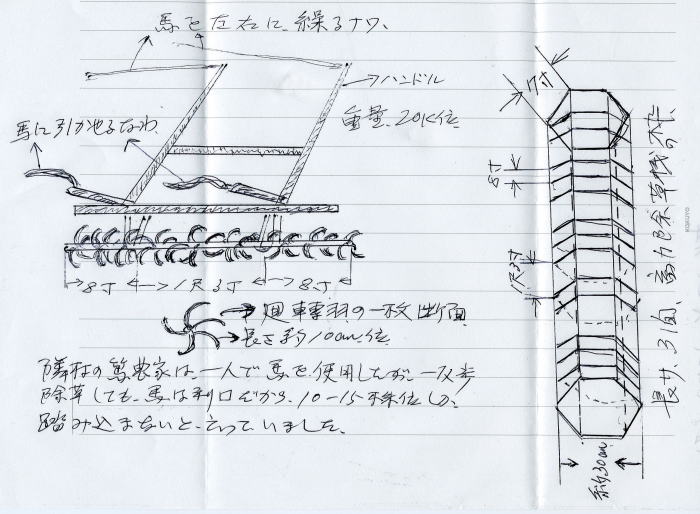 馬を左右に、繰るナワ、
ハンドル
重量、20K位
馬に引かせるなわ
8寸 1尺3寸 8寸
廻轉羽の一枚断面
長さ約10cm位
隣村の篤農家は、一人で馬を使用したが、一反歩
除草しても、馬は利口だから、10-15株位しか、
踏み込まないと、云っていました。
7寸
8寸
1尺3寸
約30cm
長サ、3１自、畜力除草機の枠
KOKUYO